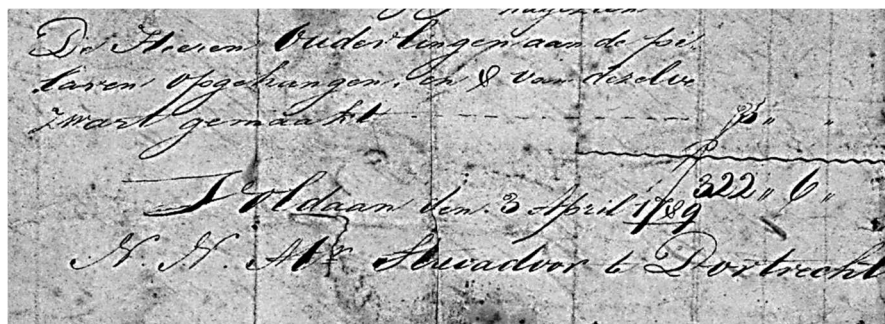 De Heren Ouderlingen aan de pi-
laren opgehangen, en 8 van dezelve
zwart gemaakt - - - - - - - - - - 3 „ „
322 „ 6 „
Voldaan den 3 April 1789
N. N. Mr te Dortrecht